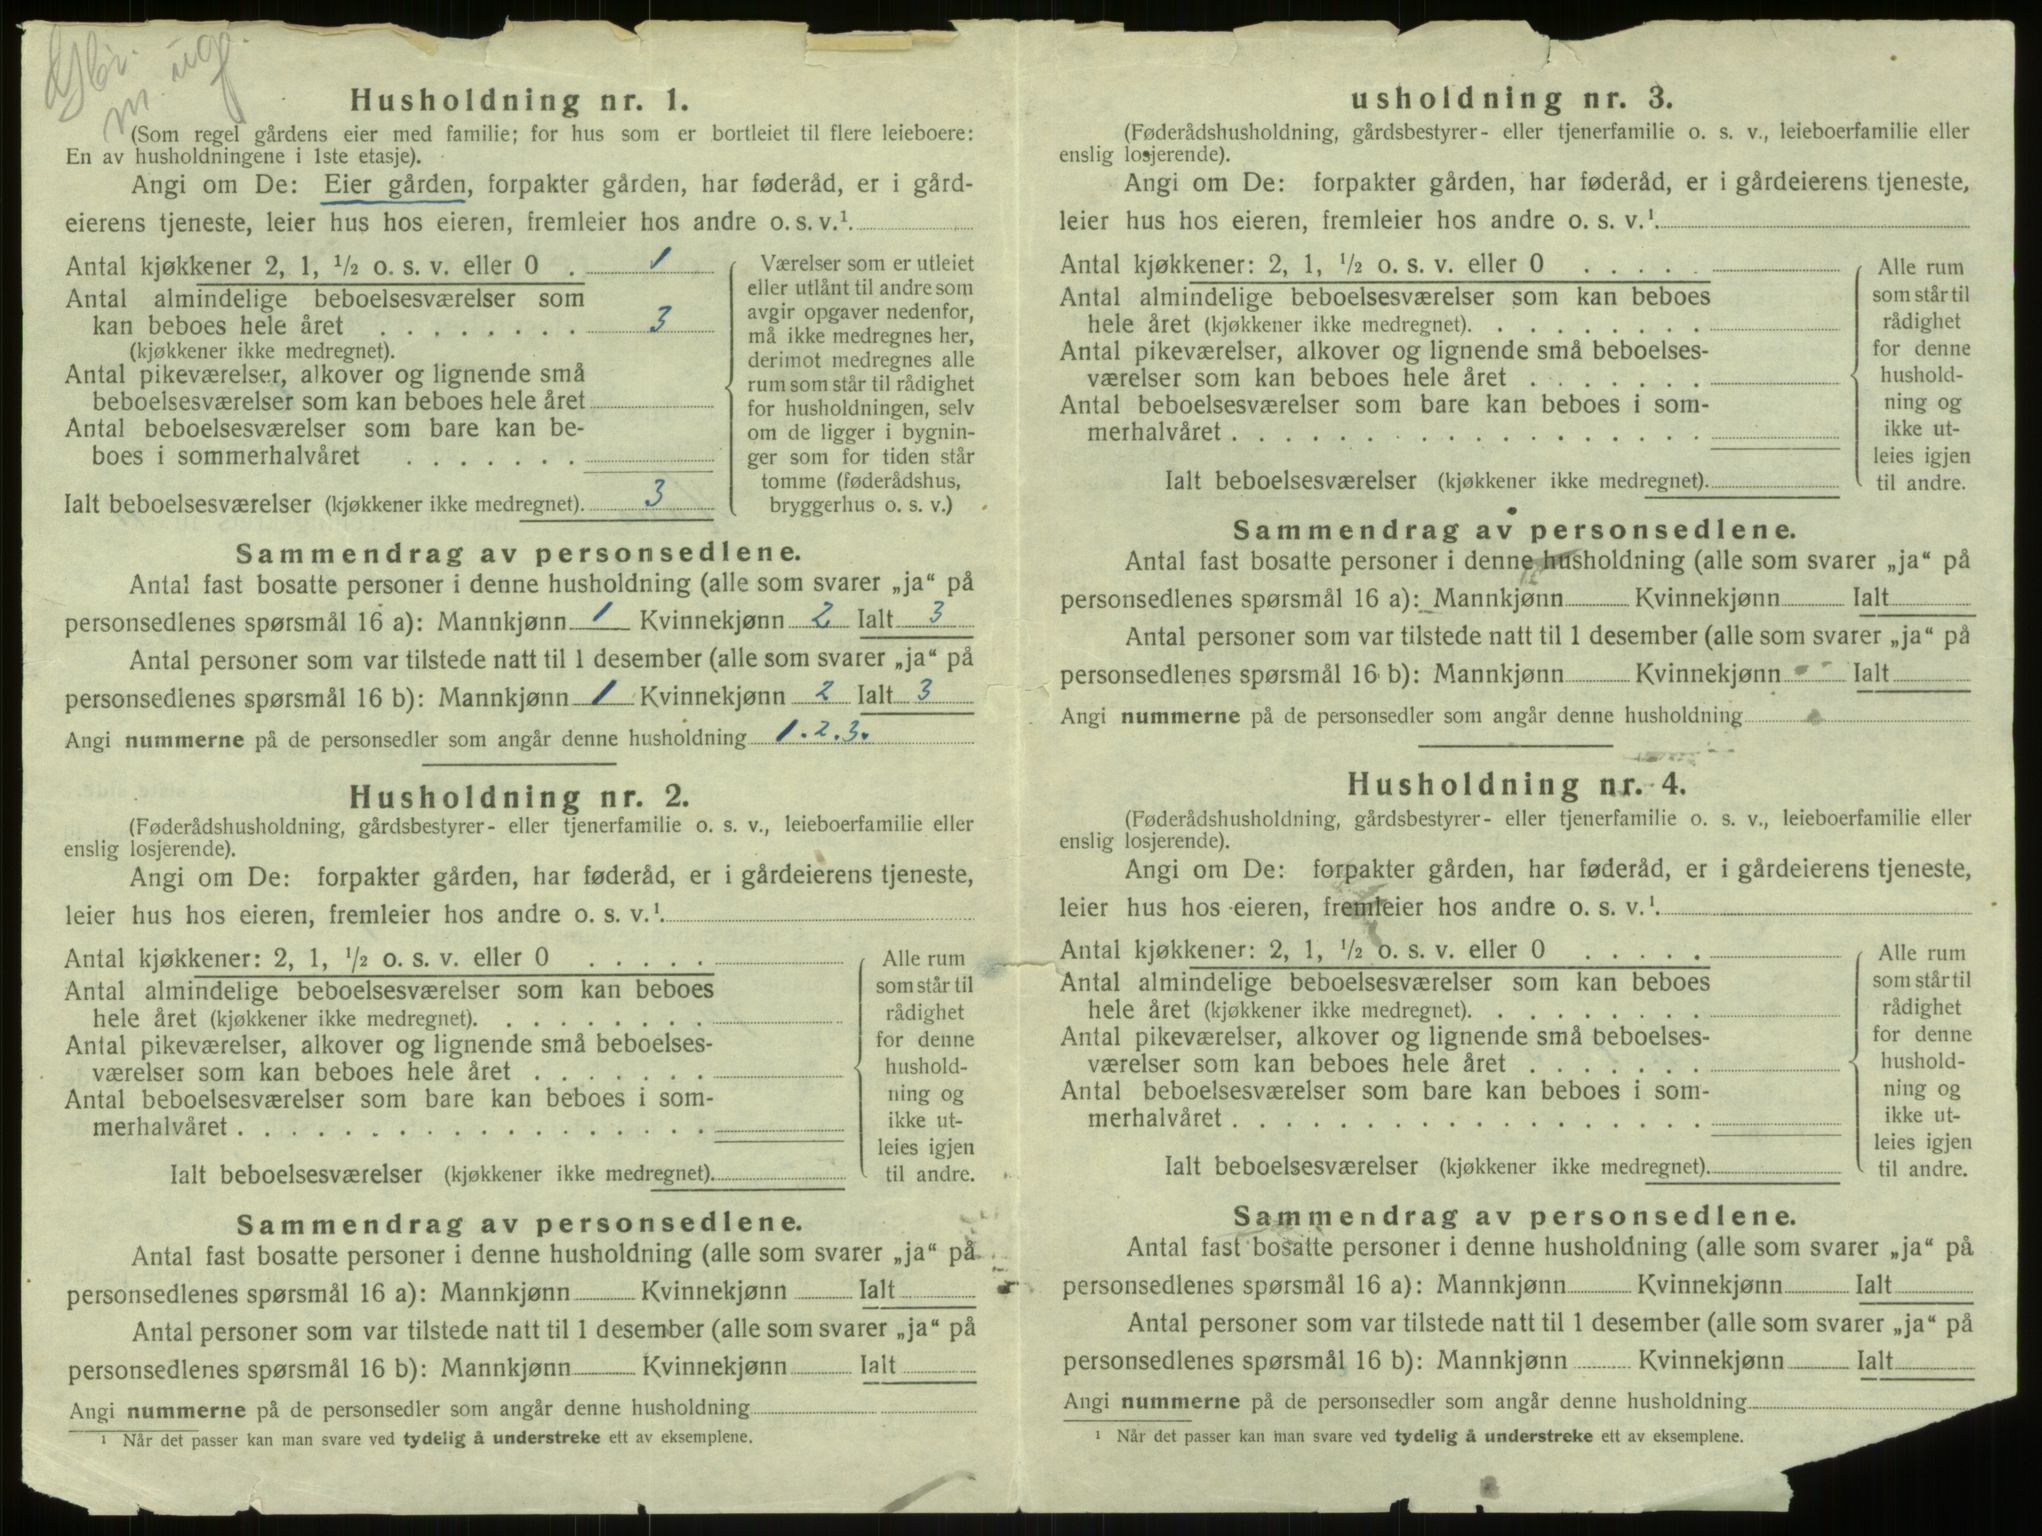 m. ug.
Husholdning nr. 1.
(Som regel gårdens eier med familie; for hus som er bortleiet til flere leieboere:
En av husholdningene i 1ste etasje).
Angi om De: Eier gården, forpakter gården, har føderåd, er i gård-
eierens tjeneste, leier hus hos eieren, fremleier hos andre o. s. v.¹.
Antal kjøkkener 2, 1, ½ o. s. v. eller 0 . 1
Antal almindelige beboelsesværelser som
kan beboes hele året . . . . . . . . 3
(kjøkkener ikke medregnet).
Antal pikeværelser, alkover og lignende små
beboelsesværelser som kan beboes hele året
Antal beboelsesværelser som bare kan be-
boes i sommerhalvåret . . . . . . .
Ialt beboelsesværelser (kjøkkener ikke medregnet). 3
Værelser som er utleiet
eller utlånt til andre som
avgir opgaver nedenfor,
må ikke medregnes her,
derimot medregnes alle
rum som står til rådighet
for husholdningen, selv
om de ligger i bygnin-
ger som for tiden står
tomme (føderådshus,
bryggerhus o. s. v.)
Sammendrag av personsedlene.
Antal fast bosatte personer i denne husholdning (alle som svarer „ja“ på
personsedlenes spørsmål 16 a): Mannkjønn 1 Kvinnekjønn 2 Ialt 3
Antal personer som var tilstede natt til 1 desember (alle som svarer „ja“ på
personsedlenes spørsmål 16 b): Mannkjønn 1 Kvinnekjønn 2 Ialt 3
Angi nummerne på de personsedler som angår denne husholdning 1. 2. 3.
Husholdning nr. 2.
(Føderådshusholdning, gårdsbestyrer- eller tjenerfamilie o. s. v., leieboerfamilie eller
enslig losjerende).
Angi om De: forpakter gården, har føderåd, er i gårdeierens tjeneste,
leier hus hos eieren, fremleier hos andre o. s. v.¹.
Antal kjøkkener: 2, 1, ½ o. s. v. eller 0 . . . . .
Antal almindelige beboelsesværelser som kan beboes
hele året (kjøkkener ikke medregnet). . . . . . . . .
Antal pikeværelser, alkover og lignende små beboelses-
værelser som kan beboes hele året . . . . . . .
Antal beboelsesværelser som bare kan beboes i som-
merhalvåret . . . . . . . . . . . . . . . . . .
Ialt beboelsesværelser (kjøkkener ikke medregnet).
Alle rum
som står til
rådighet
for denne
hushold-
ning og
ikke ut-
leies igjen
til andre.
Sammendrag av personsedlene.
Antal fast bosatte personer i denne husholdning (alle som svarer „ja“ på
personsedlenes spørsmål 16 a): Mannkjønn Kvinnekjønn Ialt
Antal personer som var tilstede natt til 1 desember (alle som svarer „ja“ på
personsedlenes spørsmål 16 b): Mannkjønn Kvinnekjønn Ialt
Angi nummerne på de personsedler som angår denne husholdning
¹ Når det passer kan man svare ved tydelig å understreke ett av eksemplene.
usholdning nr. 3.
(Føderådshusholdning, gårdsbestyrer- eller tjenerfamilie o. s. v., leieboerfamilie eller
enslig losjerende).
Angi om De: forpakter gården, har føderåd, er i gårdeierens tjeneste,
leier hus hos eieren, fremleier hos andre o. s. v.¹.
Antal kjøkkener: 2, 1, ½ o. s. v. eller 0 . . . . .
Antal almindelige beboelsesværelser som kan beboes
hele året (kjøkkener ikke medregnet). . . . . . . . .
Antal pikeværelser, alkover og lignende små beboelses-
værelser som kan beboes hele året . . . . . . .
Antal beboelsesværelser som bare kan beboes i som-
merhalvåret . . . . . . . . . . . . . . . . . .
Ialt beboelsesværelser (kjøkkener ikke medregnet).
Alle rum
som står til
rådighet
for denne
hushold-
ning og
ikke ut-
leies igjen
til andre.
Sammendrag av personsedlene.
Antal fast bosatte personer i denne husholdning (alle som svarer „ja“ på
personsedlenes spørsmål 16 a): Mannkjønn Kvinnekjønn Ialt
Antal personer som var tilstede natt til 1 desember (alle som svarer „ja“ på
personsedlenes spørsmål 16 b): Mannkjønn Kvinnekjønn Ialt
Angi nummerne på de personsedler som angår denne husholdning
Husholdning nr. 4.
(Føderådshusholdning, gårdsbestyrer- eller tjenerfamilie o. s. v., leieboerfamilie eller
enslig losjerende).
Angi om De: forpakter gården, har føderåd, er i gårdeierens tjeneste,
leier hus hos eieren, fremleier hos andre o. s. v.¹.
Antal kjøkkener: 2, 1, ½ o. s. v. eller 0 . . . . .
Antal almindelige beboelsesværelser som kan beboes
hele året (kjøkkener ikke medregnet). . . . . . . . .
Antal pikeværelser, alkover og lignende små beboelses-
værelser som kan beboes hele året . . . . . . .
Antal beboelsesværelser som bare kan beboes i som-
merhalvåret . . . . . . . . . . . . . . . . . .
Ialt beboelsesværelser (kjøkkener ikke medregnet).
Alle rum
som står til
rådighet
for denne
hushold-
ning og
ikke ut-
leies igjen
til andre.
Sammendrag av personsedlene.
Antal fast bosatte personer i denne husholdning (alle som svarer „ja“ på
personsedlenes spørsmål 16 a): Mannkjønn Kvinnekjønn Ialt
Antal personer som var tilstede natt til 1 desember (alle som svarer „ja“ på
personsedlenes spørsmål 16 b): Mannkjønn Kvinnekjønn Ialt
Angi nummerne på de personsedler som angår denne husholdning
¹ Når det passer kan man svare ved tydelig å understreke ett av eksemplene.